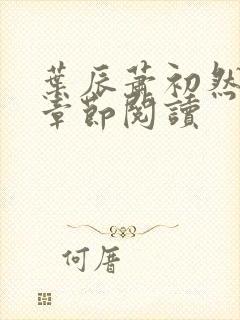 葉辰蕭初然
章節閱讀
何厝